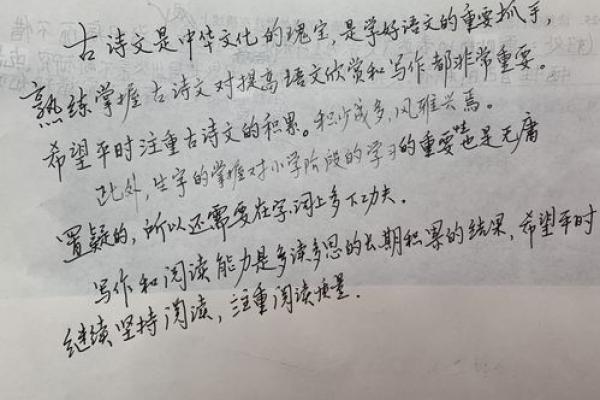 古诗文是中华文化的瑰宝,是学好语文的重要抓手,
熟练掌握古诗文对提高语文欣赏和写作都非常重要。
希望平时注重古诗文的积累。积少成多,风雅兴焉。
此外,生字的掌握对小学阶段的学习的重要性也是无庸
置疑的,所以还需要在字词上多下功夫.
写作和阅读能力是多读多思的长期积累的结果,希望平时
继续坚持阅读,注重阅读质量.